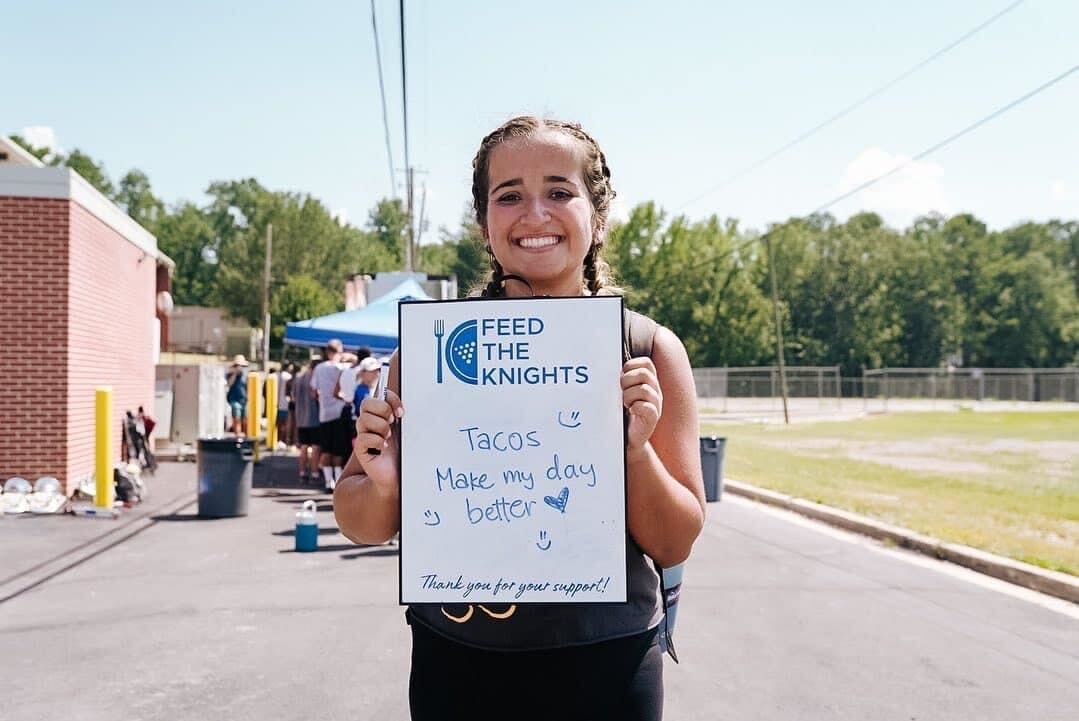 FEED
THE
KNIGHTS
Tacos
Make my day
better
Thank you for your support!